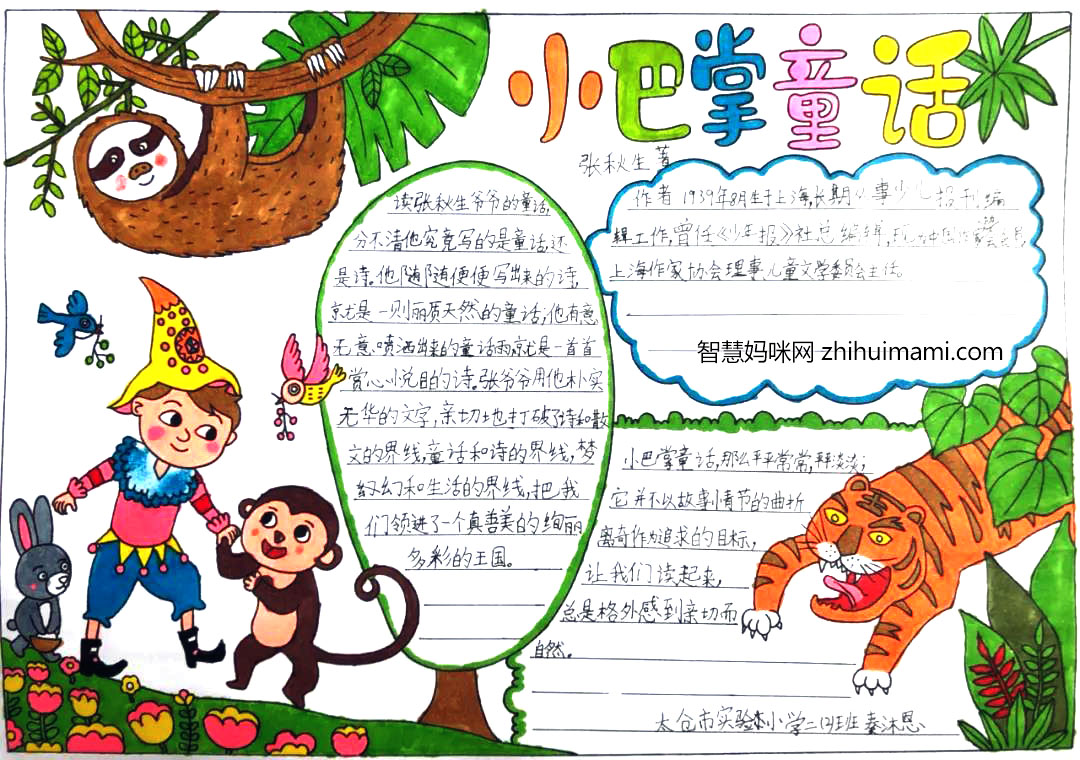 小巴掌童话
张秋生 著
读张秋生爷爷的童话,
分不清他究竟写的是童话,还
是诗。他随随便便写出来的诗,
就是一则丽质天然的童话;他有意
无意喷洒出来的童话雨,就是一首首
赏心悦目的诗。张爷爷用他朴实
无华的文字,亲切地打破了诗和散
文的界线,童话和诗的界线,梦
幻和生活的界线,把我
们领进了一个真善美的绚丽
多彩的王国。
作者1939年8月生于上海,长期从事少儿报刊编
辑工作,曾任《少年报》社总编辑,现为中国作家会员
上海作家协会理事,儿童文学委员会主任。
智慧妈咪网 zhihuimami.com
小巴掌童话,那么平平常常,平平淡淡;
它并不以故事情节的曲折
离奇作为追求的目标,
让我们读起来,
总是格外感到亲切而
自然。
太仓市实验小学二(2)班 秦沐恩